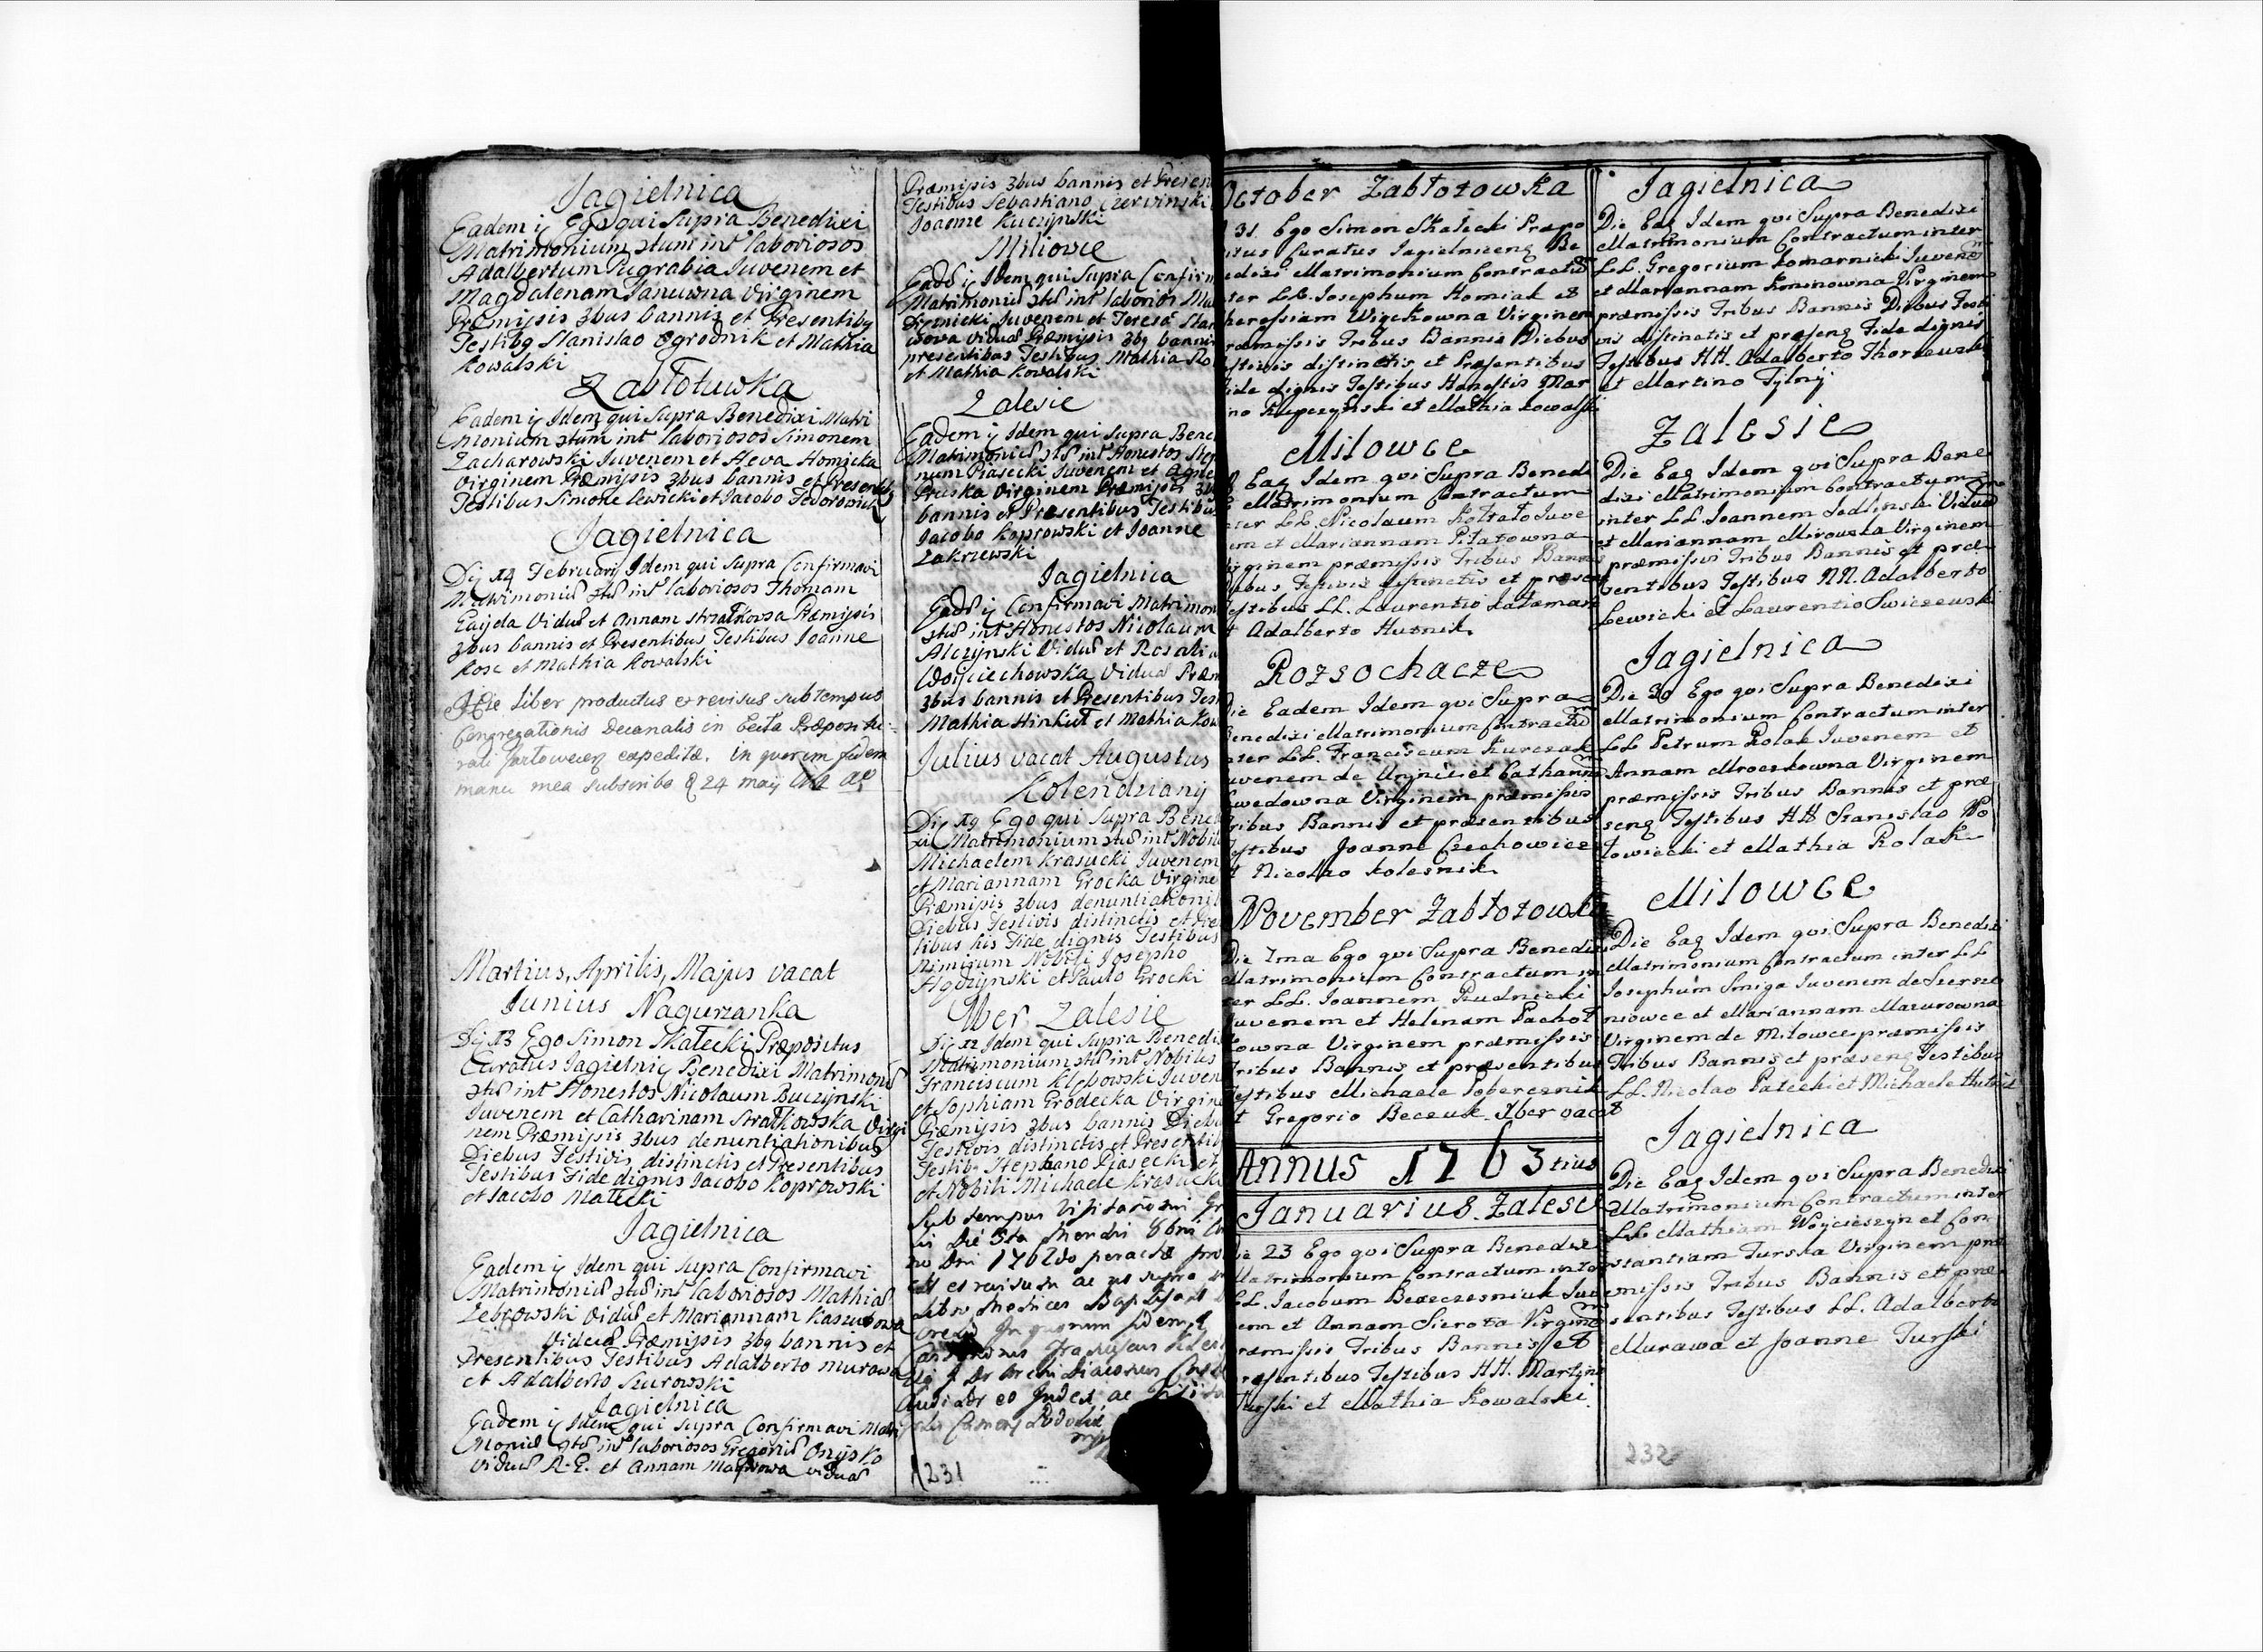 Jagielnica
Eadem ÿ Ego qui supra Benedixi
Matrimonium ɔtum int laboriosos
Adalbertum Pugrabia Juvenem et
Magdalenam Januwna Virginem
Præmissis 3bus bannis et Presentibq
Testibq Stanislao Ogrodnik et Mathia
Kowalski
Zabłotuwka
Eadem ÿ Idem qui supra Benedixi Matri
monium ɔtum int laboriosos Simonem
Zacharowski Juvenem et Heva Homicka
Virginem Præmissis 3bus bannis et Presentibq
Testibus Simone Lewicki et Jacobo Fedorowicz
Jagielnica
Dÿ 14 Februarÿ Idem qui supra Confirmavi
Matrimoniu ɔtu int laboriosos Thomam
Viduu et Annam Strzałkowa Præmissis
3bus bannis et Presentibus Testibus Joanne
Kosc et Mathia Kowalski
Hic Liber productus et revisus sub tempus
Congregationis Decanalis in Eccla Præposi
expeditæ. in quorum fidem
manu mea subscribo d 24 maÿ
Martius, Aprilis, Majus vacat
Junius Nagurzanka
Dÿ 13 Ego Simon Skałecki Præpositus
Curatus Jagielniÿ Benedixi Matrimoniu
ɔtu int Honestos Nicolaum Buczynski
Juvenem et Catharinam Stratkowska Virgi
nem Præmissis 3bus denuntiationibus
Diebus Festivis distinctis et Presentibus
Testibus Fide dignis Jacobo Koprowski
et Jacobo Małecki
Jagielnica
Eadem ÿ Idem qui supra Confirmavi
Matrimoniu ɔtu int laboriosos Mathia
Zebrowski Viduu et Mariannam Kaszubowa
Viduā Præmissis 3bq bannis et
Presentibus Testibus Adalberto Murawa
et Adalberto Szurowski
Jagielnica
Eadem ÿ Idem qui supra Confirmavi Matri
moniu ɔtu int laboriosos Gregoriu Onÿsko
Viduu R. G. et Annam viduā
Præmissis 3bus bannis et Presen
Testibus Sebastiano Czerwinski
Joanne Kuczynski
Miliowce
Eadē ÿ Idem qui supra Confirm
Matrimoniu ɔtu int laborios Ma
Juvenem et Teresā Stan
wova viduā Præmissis 3bq bannis
presentibus Testibus Mathia Ko
et Mathia Kowalski
Zalesie
Eadem ÿ Idem qui supra Bene
Matrimoniu ɔtu int Honestos Step
num Piasecki Juvenem et Agne
Pruska Virginem Præmissis 3b
bannis et Presentibus Testibus
Jacobo Koprowski et Joanne
Zakrzewski
Jagielnica
Eadē ÿ Confirmavi Matrimon
ɔtu int Honestos Nicolaum
Alczynski Viduu et Rosalia
Woyciechowska Viduā Præm
3bus bannis et Presentibus Tes
Mathia Hinkut et Mathia Kow
Julius vacat Augustus
Kolendzianÿ
Dÿ 19 Ego qui supra Bene
xi Matrimonium ɔtu int Nobile
Michaelem Krasucki Juvenem
et Mariannam Grocka Virgine
Præmissis 3bus denuntiationib
Diebus Festivis distinctis et Pre
tibus his Fide dignis Testibus
nimirum Nobili Josepho
et Paulo Grocki
9ber Zalesie
Dÿ 12 Idem qui supra Benedi
Matrimonium ɔtu int Nobiles
Franciscum Klębowski Juven
et Sophiam Grodecka Virgine
Præmissis 3bus bannis Diebu
Festivis distinctis et Presentib
Testibq Stephano Piasecki et
et Nobili Michaele Krasucki
Sub tempus Visitationis
Die 5ta Mensis 8bris
no Dni 1762do peractæ
et revisum ac
231
October Zabłotowka
31. Ego Simon Skałecki Præpo
itus Curatus Jagielniceng Be
edixi Matrimonium Contractu
ter LL. Josephum Homiak et
heressiam Wigckowna Virginem
ræmissis Tribus Bannis Diebus
estivis distinctis et Præsentibus
ide dignis Testibus Honestis Mar
ino Kupczyński et Mathia Kowalski
Milowce
Eaq Idem qvi Supra Benedi
Matrimonium Contractum
ter LL. Nicolaum Kottato Juve
em et Mariannam Pitatowna
irginem præmissis Tribus Bannis
iebus Festivis distinctis et præsen
estibus LL. Laurentio
t Adalberto Hutnik
Rozsochacze
ie Eadem Idem qvi Supra
enedixi Matrimonium Contractu
ter LL. Franciscum Kurczak
uvenem de et Catharina
Virginem præmissis
ribus Bannis et præsentibus
estibus Joanne Czechowicz
t Nicolao Kolesnik
November Zabłotowk
Die 7ma Ego qvi Supra Benedixi
Matrimonium Contractum in
er LL. Joannem Rudnicki
uvenem et Helenam Pachoł
kowna Virginem præmissis
Tribus Bannis et præsentibus
estibus Michaele Tobereznik
t Gregorio Beczuk. Xber vacat
Annus 1763 tius
Januarius. Zalesie
ie 23 Ego qvi Supra Benedixi
Matrimonium Contractum inter
LL. Jacobum Juv
em et Annam Sierota Virgine
ræmissis Tribus Bannis et
resentibus Testibus HH. Martino
Turski et Mathia Kowalski.
Jagielnica
Die Eaq Idem qvi Supra Benedixi
Matrimonium Contractum inter
LL. Gregorium Komarnicki Juvene
et Mariannam Kminowna Virginem
præmissis Tribus Bannis Diebus Festi
vis distinctis et præseng Fide dignis
Testibus HH. Adalberto
et Martino Tylny
Zalesie
Die Eaq Idem qvi Supra Bene
dixi Matrimonium Contractum
inter LL. Joannem Sedlinski Viduu
et Mariannam Mirowska Virginem
præmissis Tribus Bannis et præ
sentibus Testibus NN. Adalberto
Lewicki et Laurentio Swiezewski
Jagielnica
Die 30 Ego qvi Supra Benedixi
Matrimonium Contractum inter
LL Petrum Polak Juvenem et
Annam Mroczkowna Virginem
præmissis Tribus Bannis et præ
seng Testibus HH Stanislao No
towiecki et Mathia Rolak
Milowce
Die Eaq Idem qvi Supra Benedixi
Matrimonium Contractum inter LL
Josephum Smiga Juvenem de Szersze
niowce et Mariannam Mazurowna
Virginem de Milowce præmissis
Tribus Bannis et præseng Testibus
LL. Nicolao Patecki et Michaele Hutnik
Jagielnica
Die Eaq Idem qvi Supra Benedixi
Matrimonium Contractum inter
LL Mathiam Woÿcieszyn et Con
stantiam Turska Virginem præ
missis Tribus Bannis et præ
sentibus Testibus LL. Adalberto
Murawa et Joanne Turski
232